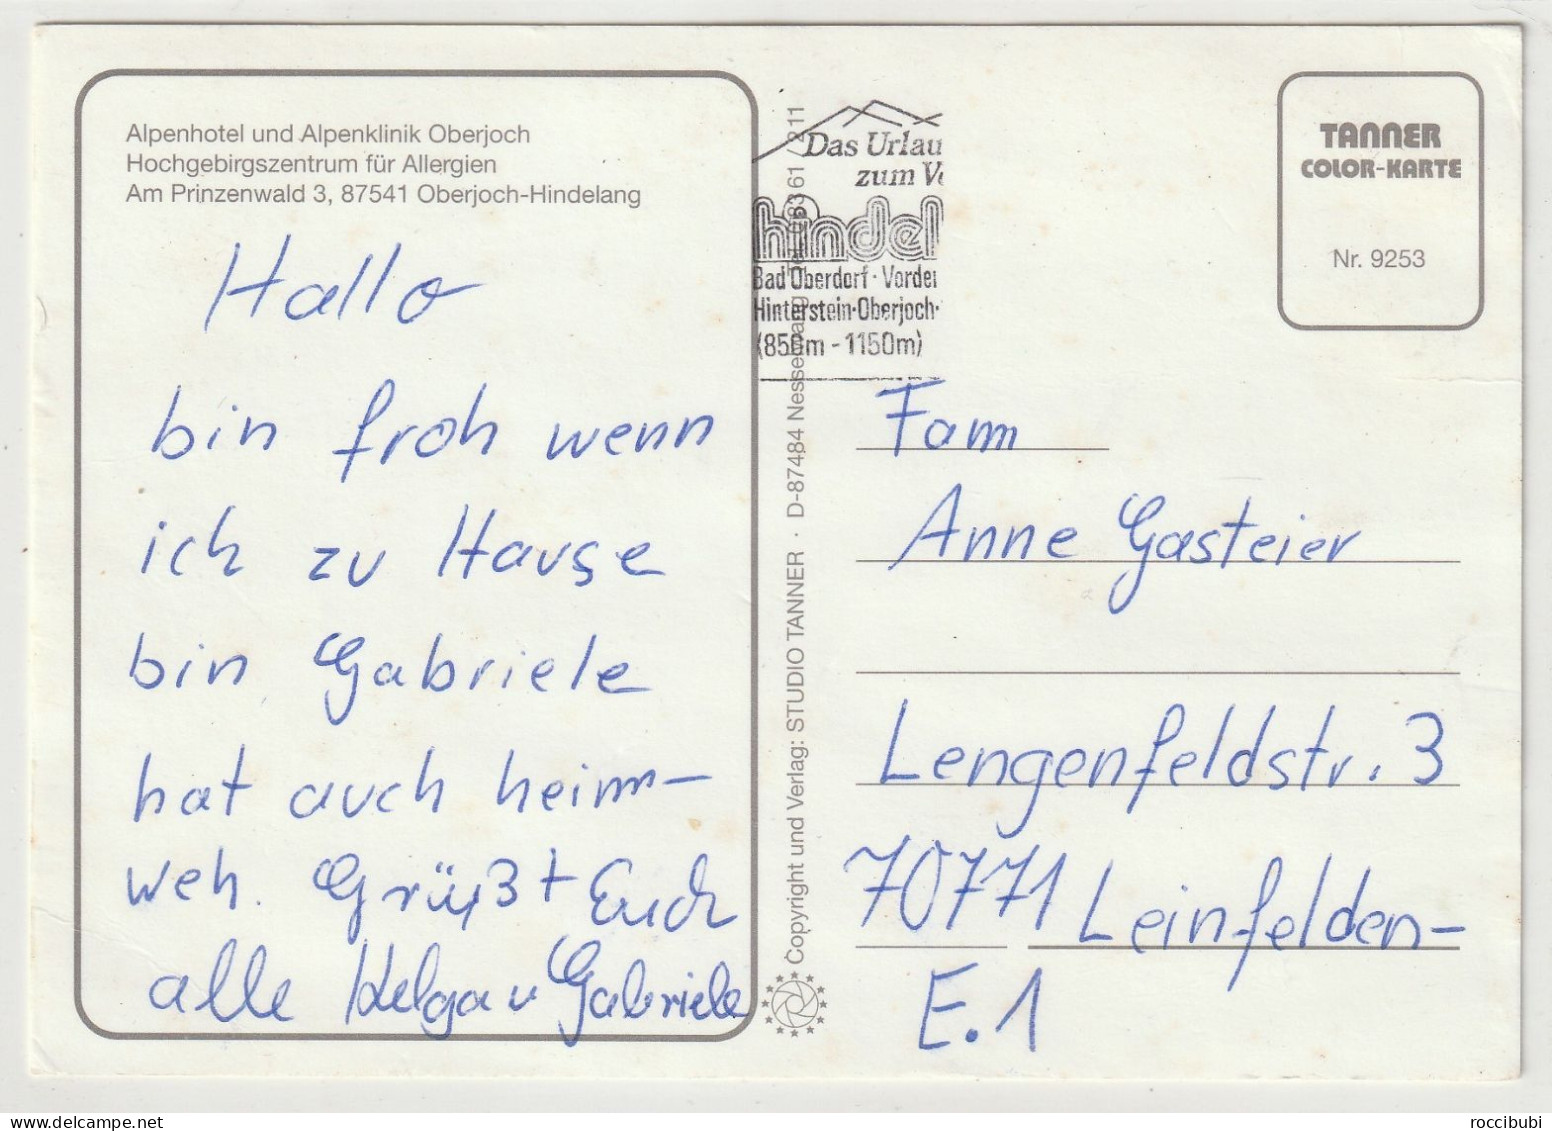 Alpenhotel und Alpenklinik Oberjoch
Hochgebirgszentrum für Allergien
Am Prinzenwald 3, 87541 Oberjoch-Hindelang
Hallo
bin froh wenn
ich zu Hause
bin Gabriele
hat auch heim-
weh. Grüßt Euch
alle Helga u Gabriele
Copyright und Verlag: STUDIO TANNER · D-87484 Nesselwang
Das Urlau
zum Ve
hindel
Bad Oberdorf · Vorder
Hinterstein·Oberjoch·
(850m - 1150m)
TANNER
COLOR-KARTE
Nr. 9253
Fam
Anne Gasteier
Lengenfeldstr. 3
70771 Leinfelden-
E.1
roccibubi